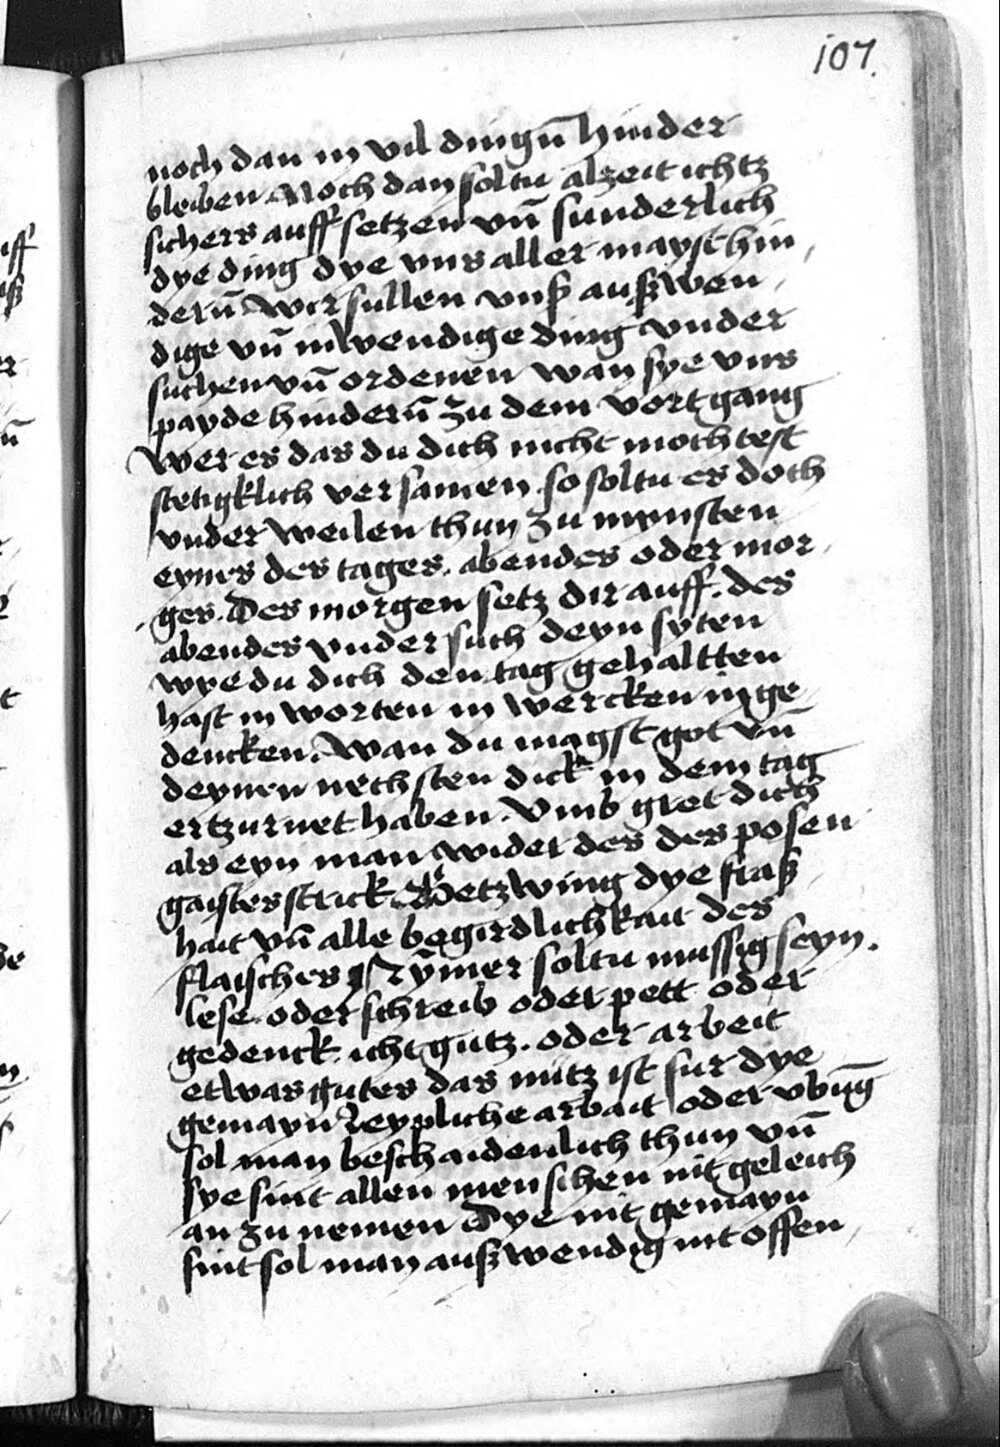 107.
noch dan in vil dingūn hinder
bleiben Noch dan soltu alzeit ichtz
sichers auff setzen vn̄ sunderlich
dye ding dye vns aller mayst hin
derūn Wir sullen vnß außwen
dige vn̄ inwendige ding vnder
suchen vn̄ ordenen wan sye vns
payde hinderūn zu dem vortgang
Wer es das du dich nicht mochtest
stetigklich versamen so soltu es doch
vnder weilen thun zu mynsten
eynes des tages. abendes oder mor
ges. Des morgen setz dir auff. des
abendes vnder such deyn syten
wye du dich den tag gehaltten
hast in worten in wercken in ge
dencken. Wan du magst got vn̄
deynen nechsten dick in dem tag
ertzurnet haben. Vmb gret dich
als eyn man wider des des posen
gaistes strick Getzwing dye fraß
hait vn̄ alle begirdlichkait des
flaisches Nȳmer soltu mussig seyn.
lese oder schreib oder pett oder
gedenck icht gutz. oder arbeit
etwas gutes das nutz ist fur dye
gemayn Leypliche arbait oder vbūg
sol man beschaidenlich thun vn̄
sye sint allen menschen nit geleich
an zu nemen Dye nit gemayn
sint sol man außwendig nit offen